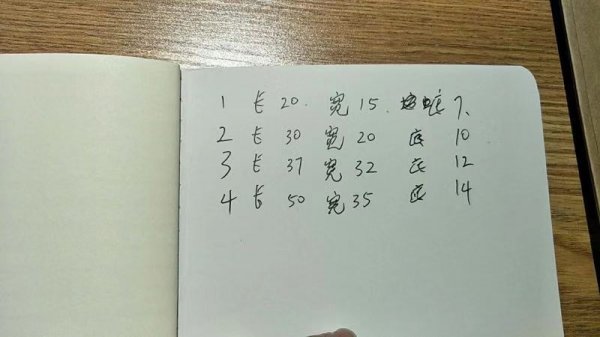 1 长 20. 宽 15. 底 7.
2 长 30 宽 20 底 10
3 长 37 宽 32 底 12
4 长 50 宽 35 底 14